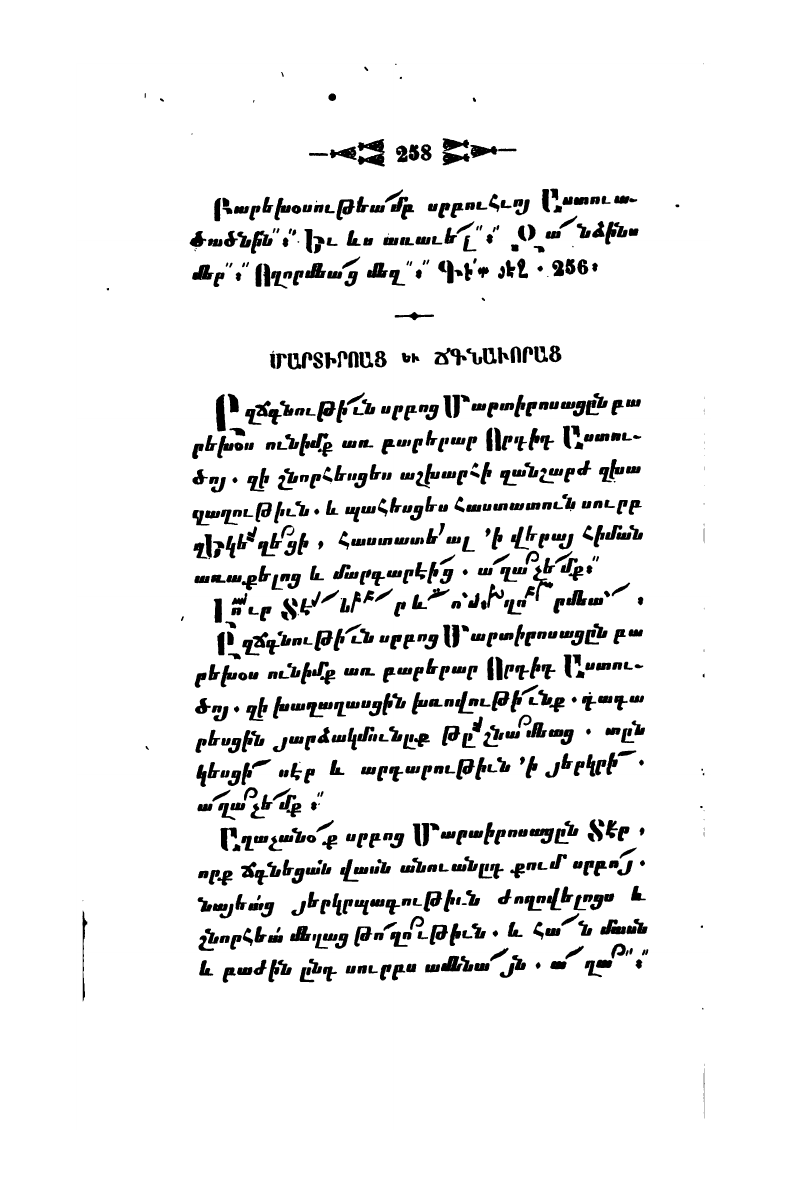 258
Բարեխօսութեամբ սրբուհւոյ Աստուա-
ծածնին։ Եւ ևս առաւել։ Զանձինս
մեր։ Ողորմեաց մեզ։ Գիր յէջ. 256։
ՄԱՐՏԻՐՈՍԱՑ ԵՒ ՃԳՆԱՒՈՐԱՑ
Ըզճգնութիւն սրբոց Մարտիրոսացըն բա
րեխօս ունիմք առ բարերար Որդիդ Աստու-
ծոյ. զի շնորհեսցես աշխարհի զանշարժ զխա
ղաղութիւն. և պահեսցես հաստատուն սուրբ
զԵկեղեցի, հաստատեալ ՚ի վերայ հիման
առաքելոց և մարգարէից. աղաչեմք։
Լուր Տէր և ողորմեա։
Ըզճգնութիւն սրբոց Մարտիրոսացըն բա
րեխօս ունիմք առ բարերար Որդիդ Աստու-
ծոյ. զի խաղաղասցին խռովութիւնք. դադա
րեսցին յարձակմունըք թըշնամեաց. տըն
կեսցի սէր և արդարութիւն ՚ի յերկրի.
աղաչեմք։
Աղաչանօք սրբոց Մարտիրոսացըն Տէր,
որք ճգնեցան վասն անուանըդ քում սրբոյ.
նայեաց յերկրպագութիւն ժողովելոցս և
շնորհեա մեղաց թողութիւն. և հան մասն
և բաժին ընդ սուրբս ամենայն. աղա։